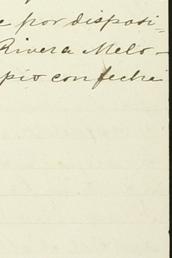 e por disposi-
Rivera Melo-
pio con fecha